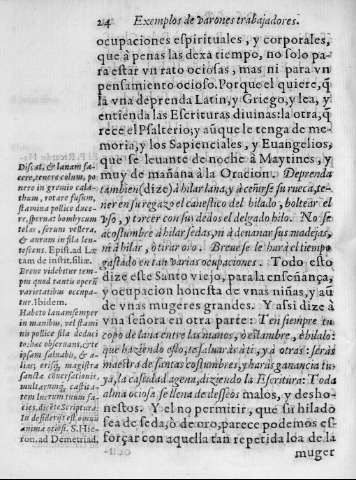 24 Exemplos de varones trabajadores.
ocupaciones espirituales, y corporales,
que à penas las dexa tiempo, no solo pa-
ra estar vn rato ociosas, mas ni para vn
pensamiento ocioso. Porque el quiere, q̃
la vna deprenda Latin, y Griego, y lea, y
entienda las Escrituras diuinas: la otra, q̃
rece el Psalterio; y aũque le tenga de me-
moria; y los Sapienciales, y Euangelios,
que se leuante de noche à Maytines, y
muy de mañana à la Oracion. Deprenda
tambien (dize) à hilar lana, y à ceñirse su rueca, te-
ner en su regazo el canestico del hilado, boltear el
vso, y torcer con sus dedos el delgado hilo. No se
acostumbre à hilar sedas, ni à deuanar sus madejas,
ni à hilar, ò tirar oro. Breue se le harà el tiempo
gastado en tan varias ocupaciones. Todo esto
dize este Santo viejo, para la enseñança,
y ocupacion honesta de vnas niñas, y aũ
de vnas mugeres grandes. Y assi dize à
vna señora en otra parte: Ten siempre tu
copo de lana entre las manos, ò estambre, è hilalo:
que haziendo esto, te saluaràs à ti, y à otras: seràs
maestra de santas costumbres, y haràs ganancia tu-
ya, la castidad agena, diziendo la Escritura: Toda
alma ociosa se llena de desseos malos, y desho-
nestos. Y el no permitir, que su hilado
sea de seda, ò de oro, parece podemos es-
forçar con aquella tan repetida loa de la
muger
Discat, & lanam fa-
cere, tenere colum, po-
nere in gremio cala-
thum, rotare fusum,
stamina pollice duce-
re, spernat bombycum
telas, serum vellera,
& aurum in fila len-
tescens. Epist. ad Læ
tam de instit. filiæ.
Breue videbitur tem-
pus quod tantis operũ
varietatibus occupa-
tur. Ibidem.
Habeto lanam semper
in manibus, vel stami-
nis pollice fila deduci
to: hæc obseruans, & te
ipsam saluabis, & a-
lias; eris, magistra
sanctæ conuersationis,
multarumq, castita-
tem lucrum tuum fa-
cies, dicẽte Scriptura:
In desiderijs est omnis
anima otiosi. S. Hie-
ron. ad Demetriad.